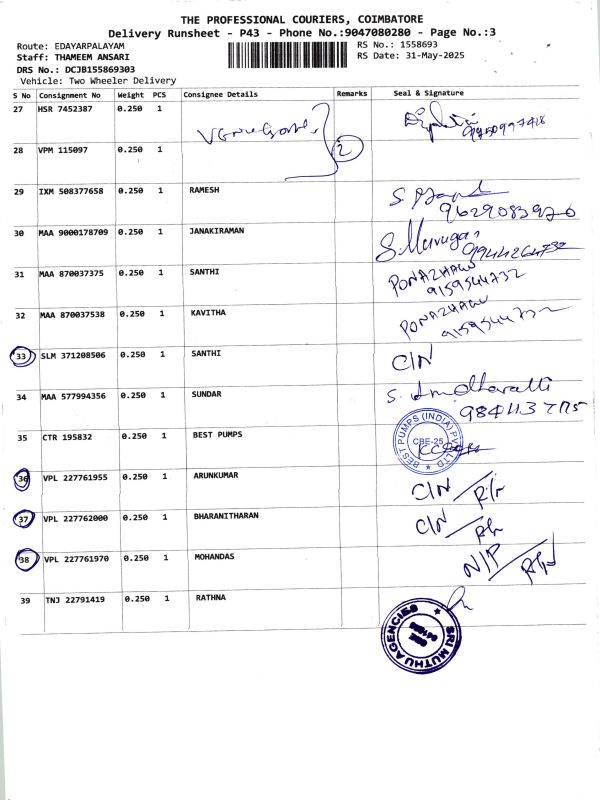 THE PROFESSIONAL COURIERS, COIMBATORE
Delivery Runsheet - P43 - Phone No.:9047080280 - Page No.:3
Route: EDAYARPALAYAM
RS No.: 1558693
Staff: THAMEEM ANSARI
RS Date: 31-May-2025
DRS No.: DCJB155869303
Vehicle: Two Wheeler Delivery
S No Consignment No Weight PCS Consignee Details Remarks Seal & Signature
27 HSR 7452387 0.250 1
28 VPM 115097 0.250 1 2
29 IXM 508377658 0.250 1 RAMESH
9629083970
30 MAA 9000178709 0.250 1 JANAKIRAMAN S. Murugan
9944264732
31 MAA 870037375 0.250 1 SANTHI PONAZHAGU
9159544732
32 MAA 870037538 0.250 1 KAVITHA PONAZHAGU
9159544732
33 SLM 371208506 0.250 1 SANTHI C/N
34 MAA 577994356 0.250 1 SUNDAR
35 CTR 195832 0.250 1 BEST PUMPS BEST PUMPS (INDIA) PVT LTD CBE-25
36 VPL 227761955 0.250 1 ARUNKUMAR C/N
37 VPL 227762000 0.250 1 BHARANITHARAN C/N
38 VPL 227761970 0.250 1 MOHANDAS N/P
39 TNJ 22791419 0.250 1 RATHNA
SRI MUTHU AGENCIES